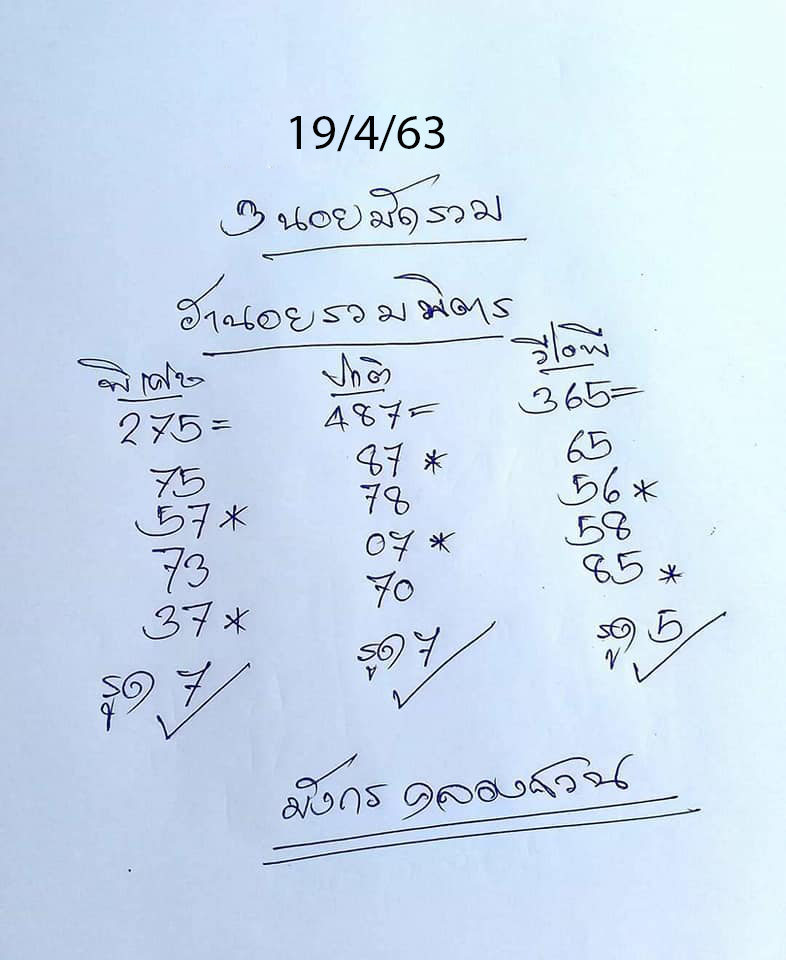 19/4/63
3 นอยมัดรวม
ฮานอยรวมมิตร
พิเศษ ปกติ วีไอพี
275= 487= 365=
75 87 * 65
57 * 78 56 *
73 07 * 58
37 * 70 85 *
รูด 7 รูด 7 รูด 5
มังกร คลองสวน